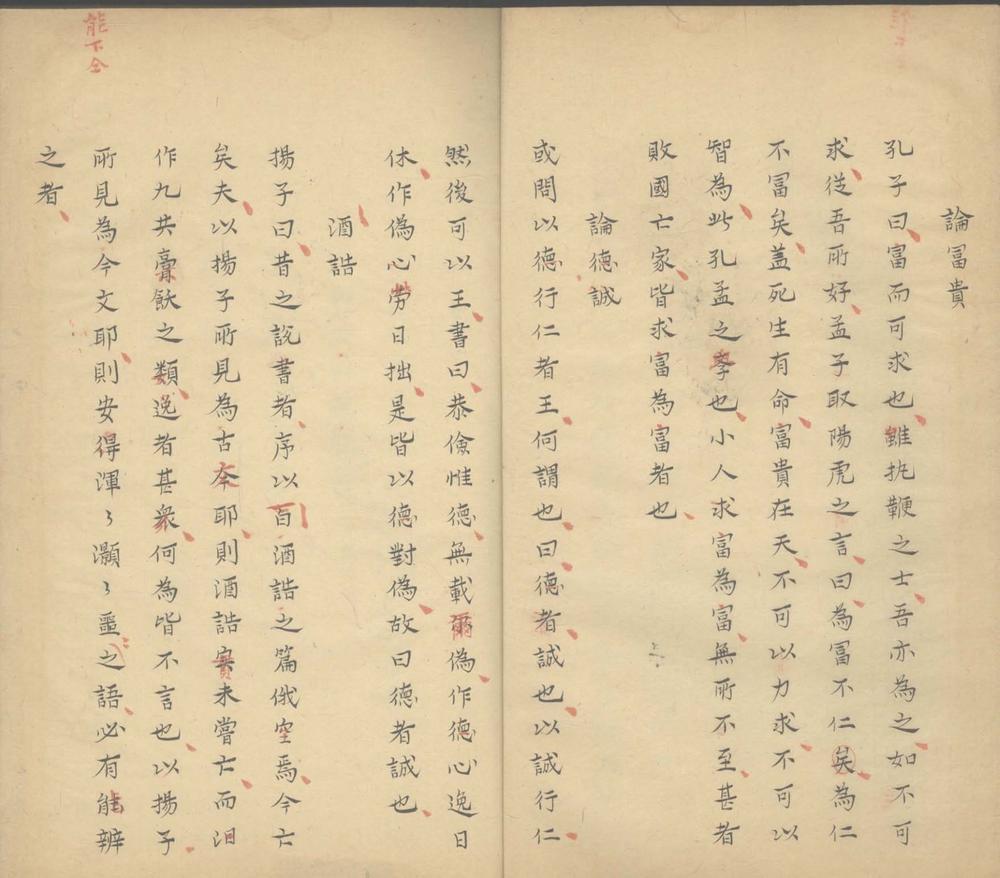 論冨貴
孔子曰富而可求也雖执鞭之士吾亦為之如不可
求從吾所好孟子取陽虎之言曰為冨不仁矣為仁
不冨矣盖死生有命富貴在天不可以力求不可以
智為此孔孟之學也小人求富為富無所不至甚者
敗國亡家皆求富為富者也
論德誠
或問以德行仁者王何謂也曰德者誠也以誠行仁
然後可以王書曰恭儉惟德無載爾偽作德心逸日
休作偽心勞日拙是皆以德對偽故曰德者誠也
酒誥
揚子曰昔之說書者序以百酒誥之篇俄空焉今亡
矣夫以揚子所見為古耶則酒誥實未嘗亡而汨
作九共膏飫之類逸者甚衆何為皆不言也以揚子
所見為今文耶則安得渾〻灝〻噩之語必有能辨
之者
能下全